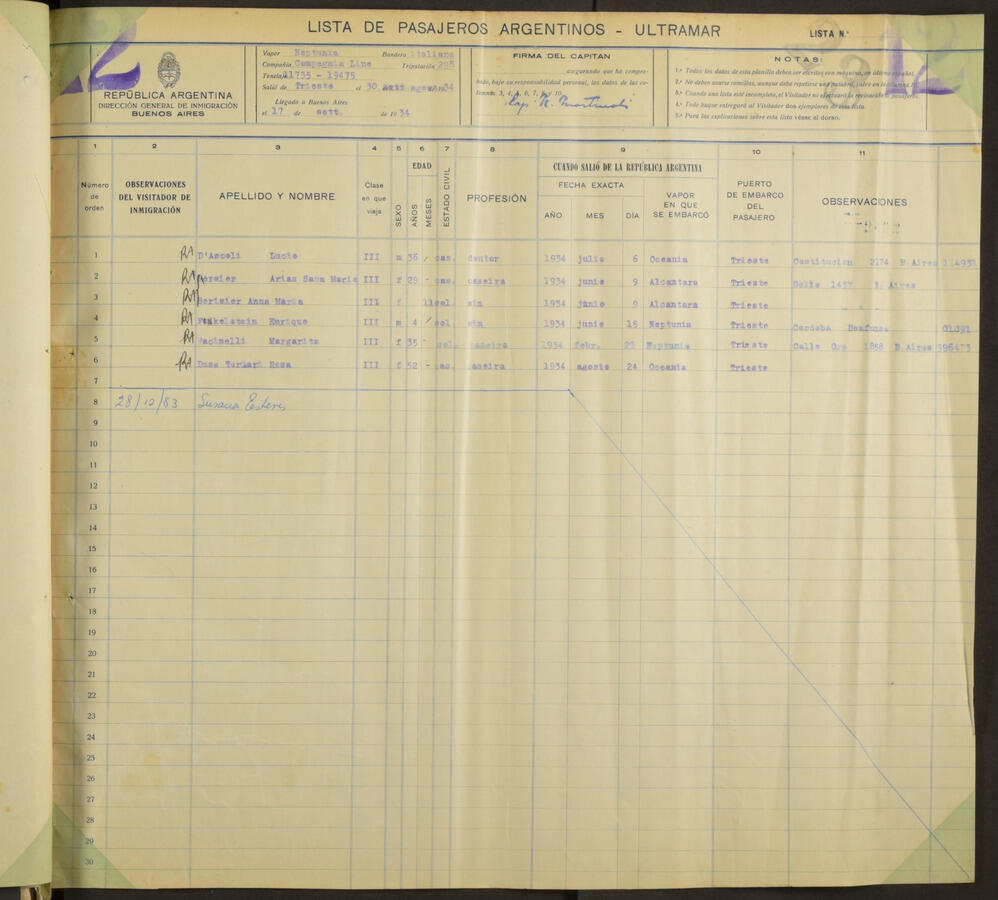 LISTA DE PASAJEROS ARGENTINOS - ULTRAMAR
LISTA N.º
12
REPÚBLICA ARGENTINA
DIRECCIÓN GENERAL DE INMIGRACIÓN
BUENOS AIRES
Vapor Neptunia Bandera italiana
Compañía Compagnia Line Tripulación 298
Tonelaje 11735 - 19475
Salió de Trieste el 30 agos 34
Llegado a Buenos Aires
el 17 de sett. de 1934
FIRMA DEL CAPITAN
asegurando que ha compro-
bado, bajo su responsabilidad personal, los datos de las co-
lumnas 3, 4, 5, 6, 7, 8 y 10.
NOTAS:
1.ª Todos los datos de esta planilla deben ser escritos con máquina, en idioma español.
2.ª No deben usarse comillas, aunque deba repetirse una palabra, salvo en la columna 10.
3.ª Cuando una lista esté incompleta, el Visitador no efectuará la revisación de pasajeros.
4.ª Todo buque entregará al Visitador dos ejemplares de esta lista.
5.ª Para las explicaciones sobre esta lista véase el dorso.
1 2 3 4 5 6 7 8 9 10 11
Número de orden
OBSERVACIONES DEL VISITADOR DE INMIGRACIÓN
APELLIDO Y NOMBRE
Clase en que viaja
SEXO
EDAD
AÑOS
MESES
ESTADO CIVIL
PROFESIÓN
CUANDO SALIÓ DE LA REPÚBLICA ARGENTINA
FECHA EXACTA
AÑO MES DÍA
VAPOR EN QUE SE EMBARCÓ
PUERTO DE EMBARCO DEL PASAJERO
OBSERVACIONES
1 RA D'Ascoli Lucio III m 36 cas. 1934 julio 6 Oceania Trieste Constitucion 2174 B.Aires
2 RA Maria III f 29 - cas. caseira 1934 junio 9 Alcantara Trieste Solis 1457 B. Aires
3 RA Anna Maria III f 11 sol. sin 1934 junio 9 Alcantara Trieste " "
4 RA Enrique III m 4 sol sin 1934 junio 15 Neptunia Trieste Cordoba
5 RA Margarita III f 35 - caseira 1934 febr. 23 Neptunia Trieste Calle Oro 1888 B.Aires
6 RA Rosa III f 52 - cas. caseira 1934 agosto 24 Oceania Trieste
7
8 28/12/83 Susana
9
10
11
12
13
14
15
16
17
18
19
20
21
22
23
24
25
26
27
28
29
30